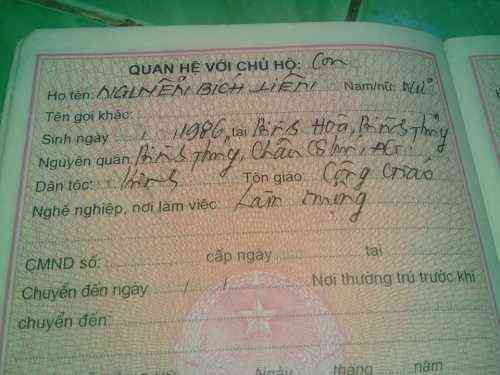 QUAN HỆ VỚI CHỦ HỘ: Con
Họ tên: NGUYỄN BÍCH LIÊN Nam/nữ: Nữ
Tên gọi khác:
Sinh ngày / / 1986, tại Bình Hoà, Bình Thủy
Nguyên quán: Bình Thủy, Châu
Dân tộc: Kinh Tôn giáo: Công Giáo
Nghề nghiệp, nơi làm việc: Làm mướn
CMND số: cấp ngày tại
Chuyển đến ngày / / Nơi thường trú trước khi
chuyển đến:
Ngày tháng năm